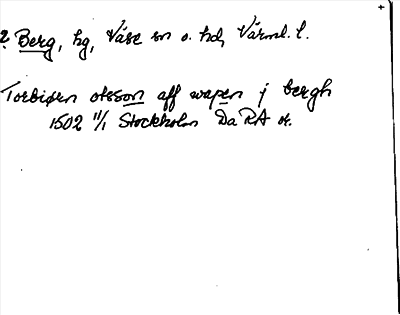 2. Berg, hg, Väse sn o. hd, Värml. l.
Torbiørn olsson aff wapen j bergh
1502 11/1 Stockholm Da RA or.